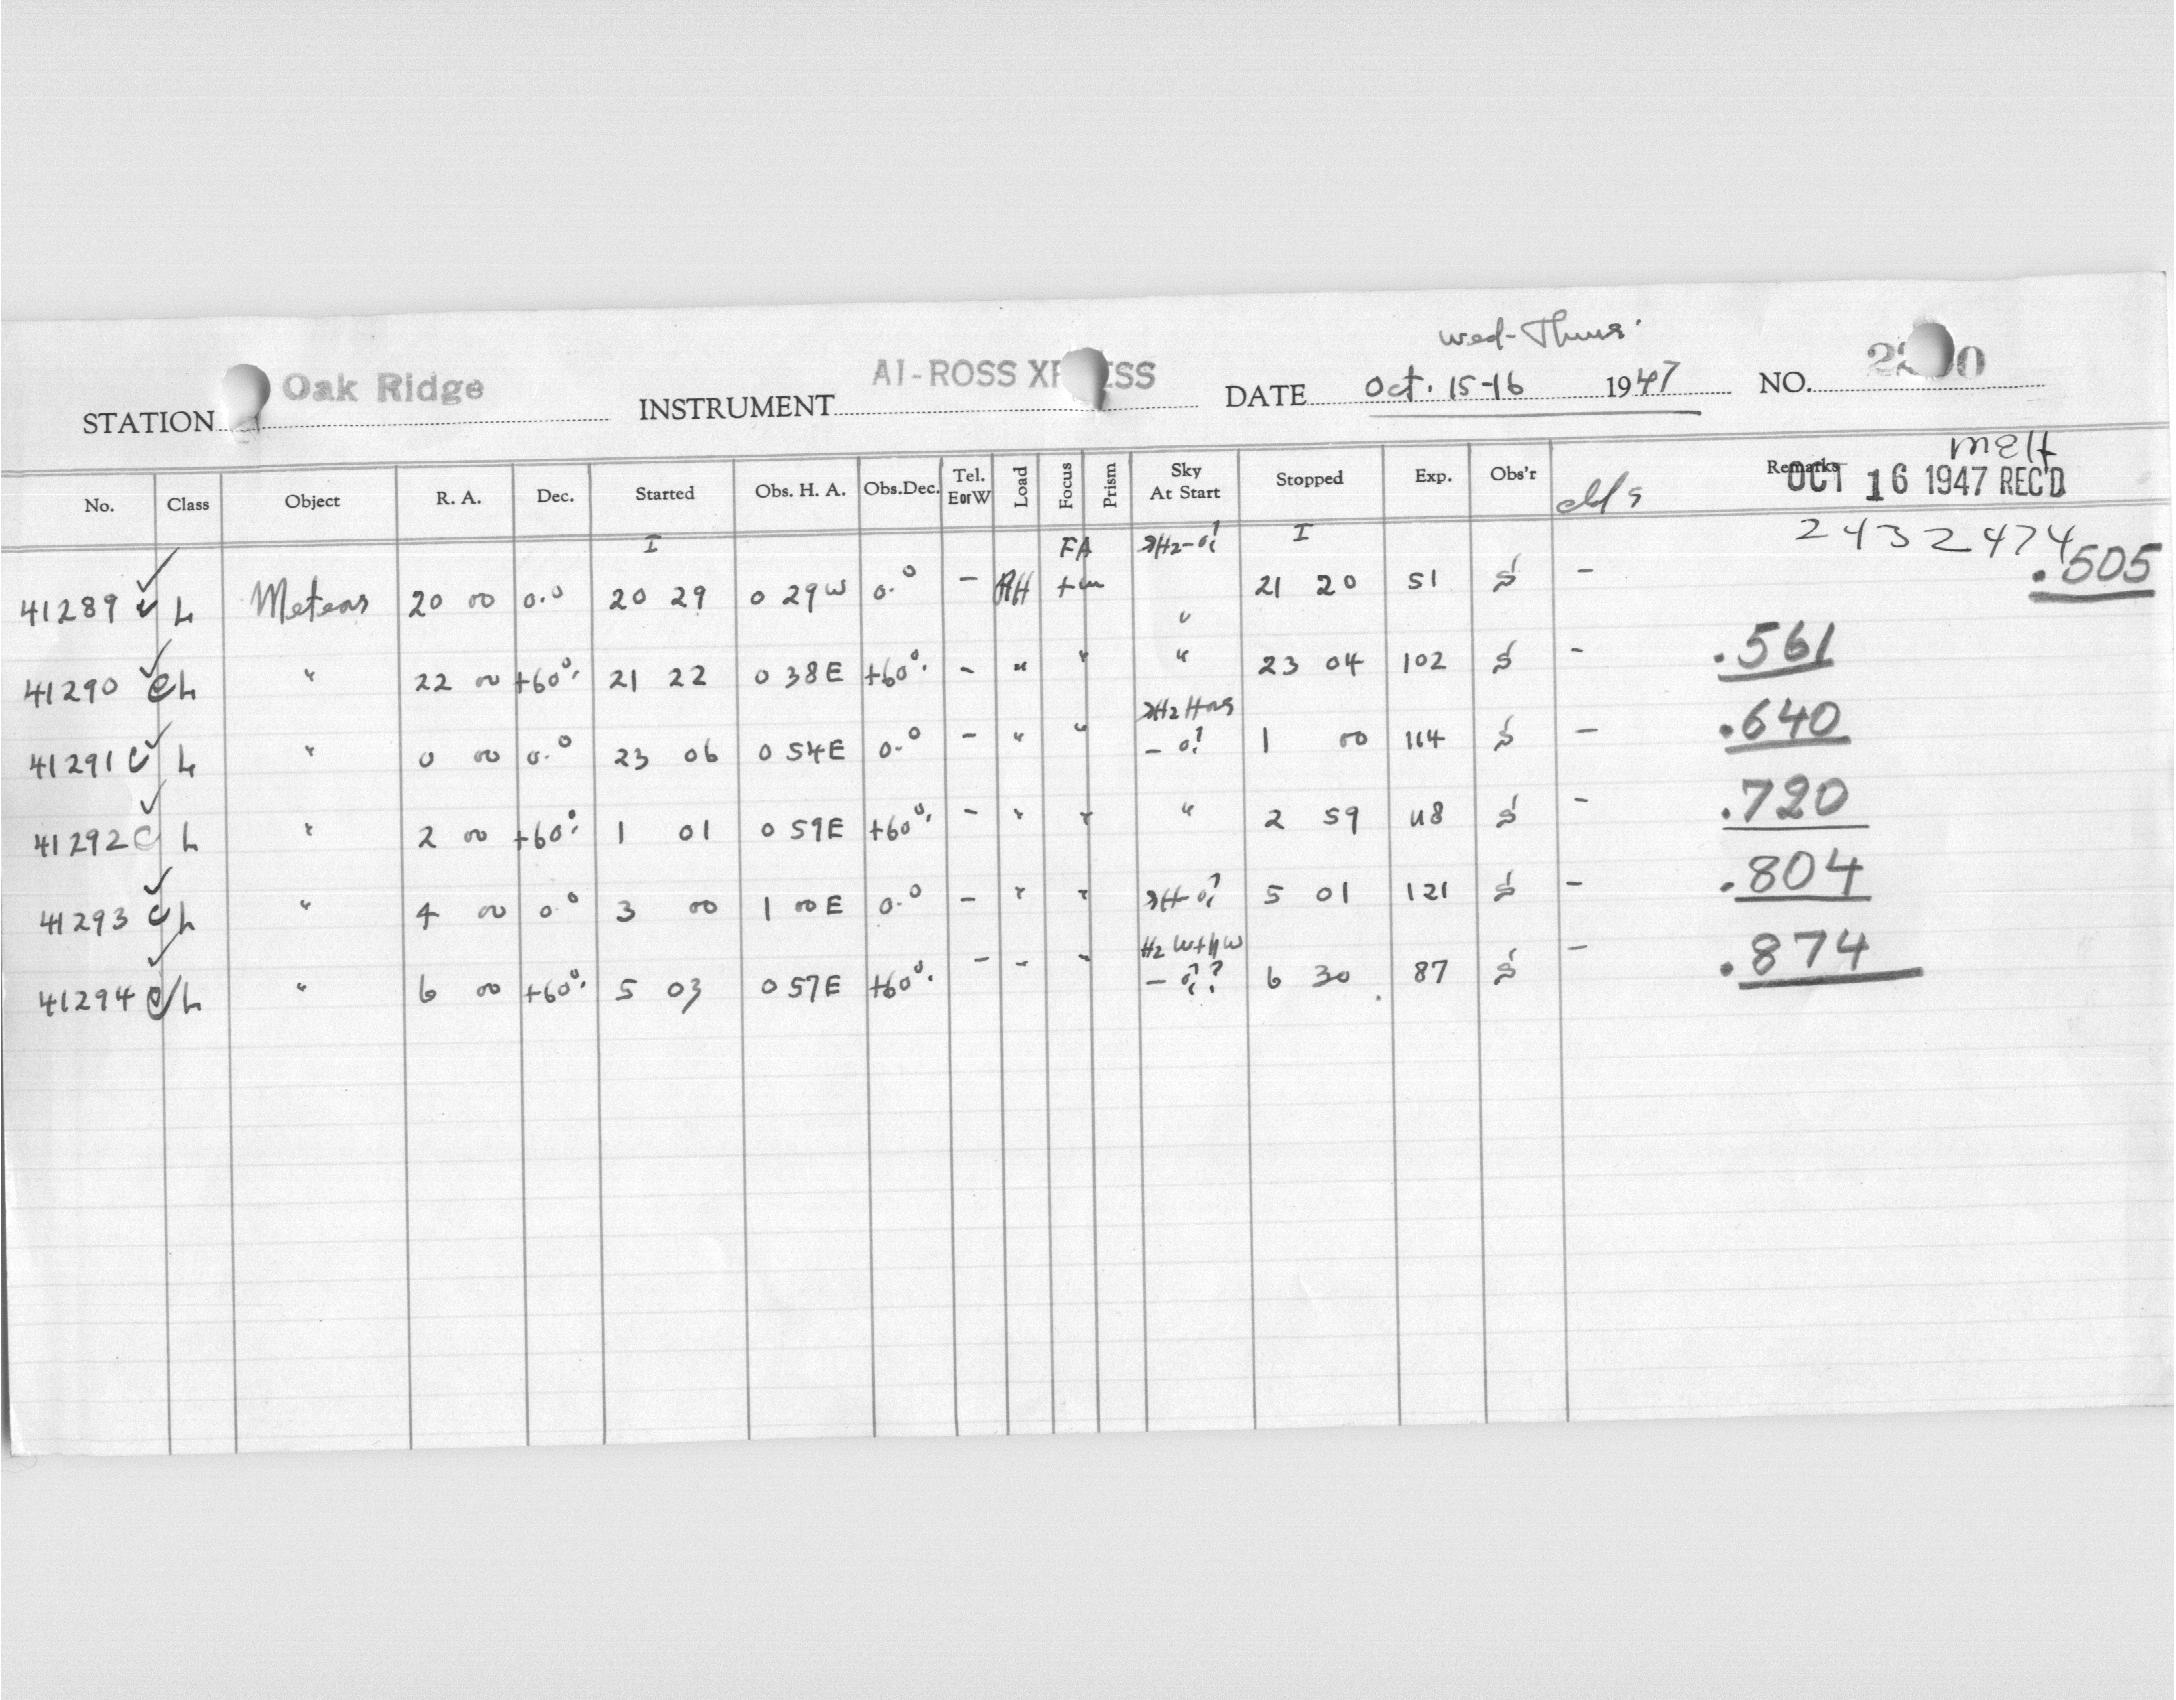 Wed-Thurs.
STATION Oak Ridge INSTRUMENT AI-ROSS XP ESS DATE Oct. 15-16 1947 NO. 2 0
No. Class Object R. A. Dec. Started Obs. H. A. Obs.Dec. Tel. EorW Load Focus Prism Sky At Start Stopped Exp. Obs'r Remarks
OCT 16 1947 REC'D
I FA I 2432474
41289 L Meteors 20 00 0.° 20 29 0 29W 0.° - 21 20 51 - .505
41290 L " 22 00 +60° 21 22 0 38E +60° - " " " 23 04 102 - .561
41291 L " 0 00 0.° 23 06 0 54E 0.° - " " 1 00 114 - .640
41292 L " 2 00 +60° 1 01 0 59E +60° - " " " 2 59 118 - .720
41293 L " 4 00 0.° 3 00 1 00E 0.° - " " 5 01 121 - .804
41294 L " 6 00 +60° 5 03 0 57E +60° - " " 6 30 87 - .874